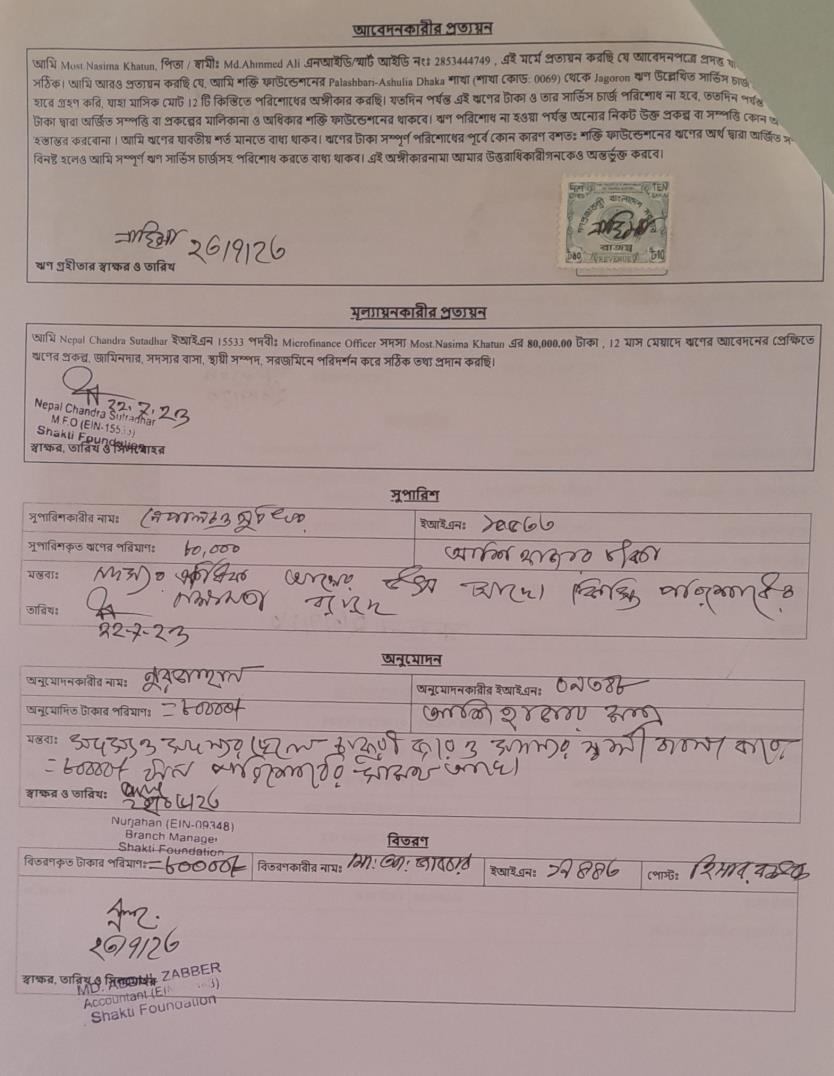 আবেদনকারীর প্রত্যয়ন
আমি Most.Nasima Khatun, পিতা / স্বামীঃ Md.Ahmmed Ali এনআইডি/স্মার্ট আইডি নংঃ 2853444749 , এই মর্মে প্রত্যয়ন করছি যে আবেদনপত্রে প্রদত্ত
সঠিক। আমি আরও প্রত্যয়ন করছি যে, আমি শক্তি ফাউন্ডেশনের Palashbari-Ashulia Dhaka শাখা (শাখা কোড: 0069) থেকে Jagoron ঋণ উল্লেখিত সার্ভিস চার্জ
হারে গ্রহণ করি, যাহা মাসিক মোট 12 টি কিস্তিতে পরিশোধের অঙ্গীকার করছি। যতদিন পর্যন্ত এই ঋণের টাকা ও তার সার্ভিস চার্জ পরিশোধ না হবে, ততদিন পর্যন্ত
টাকা দ্বারা অর্জিত সম্পত্তি বা প্রকল্পের মালিকানা ও অধিকার শক্তি ফাউন্ডেশনের থাকবে। ঋণ পরিশোধ না হওয়া পর্যন্ত অন্যের নিকট উক্ত প্রকল্প বা সম্পত্তি কোন
হস্তান্তর করবোনা । আমি ঋণের যাবতীয় শর্ত মানতে বাধ্য থাকব। ঋণের টাকা সম্পূর্ণ পরিশোধের পূর্বে কোন কারণ বশতঃ শক্তি ফাউন্ডেশনের ঋণের অর্থ দ্বারা অর্জিত
বিনষ্ট হলেও আমি সম্পূর্ণ ঋণ সার্ভিস চার্জসহ পরিশোধ করতে বাধ্য থাকব। এই অঙ্গীকারনামা আমার উত্তরাধিকারীগনকেও অন্তর্ভুক্ত করবে।
TEN
গণপ্রজাতন্ত্রী বাংলাদেশ সরকার
রাজস্ব
REVENUE
নাছিমা ২৩/৭/২৩
নাছিমা
ঋণ গ্রহীতার স্বাক্ষর ও তারিখ
মূল্যায়নকারীর প্রত্যয়ন
আমি Nepal Chandra Sutadhar ইআইএন 15533 পদবী: Microfinance Officer সদস্য Most.Nasima Khatun এর 80,000.00 টাকা , 12 মাস মেয়াদে ঋণের আবেদনের প্রেক্ষিতে
ঋণের প্রকল্প, জামিনদার, সদস্যর বাসা, স্থায়ী সম্পদ, সরজমিনে পরিদর্শন করে সঠিক তথ্য প্রদান করছি।
22.7.23
Nepal Chandra Sutradhar
M.F.O (EIN-15533)
Shakti Foundation
স্বাক্ষর, তারিখ ও সিলমোহর
সুপারিশ
সুপারিশকারীর নামঃ
ইআইএন: ১৫৫৩৩
সুপারিশকৃত ঋণের পরিমাণ: ৮০,০০০
আশি হাজার টাকা
মন্তব্য:
তারিখ:
22-7-23
অনুমোদন
অনুমোদনকারীর নাম: নুরজাহান
অনুমোদনকারীর ইআইএন: ০৯৩৪৮
অনুমোদিত টাকার পরিমাণ: =৮০০০০/
আশি হাজার মাত্র
মন্তব্য:
=৮০০০০/
স্বাক্ষর ও তারিখ:
Nurjahan (EIN-09348)
Branch Manager
Shakti Foundation
বিতরণ
বিতরণকৃত টাকার পরিমাণ: =৮০০০০/ বিতরণকারীর নাম: মো: আ: জাব্বার ইআইএন: ১৭৪৪৬ পোস্ট: হিসাব রক্ষক
২৩/৭/২৩
স্বাক্ষর, তারিখ ও সিলমোহর
MD. ABDUL ZABBER
Accountant (EIN
Shakti Foundation